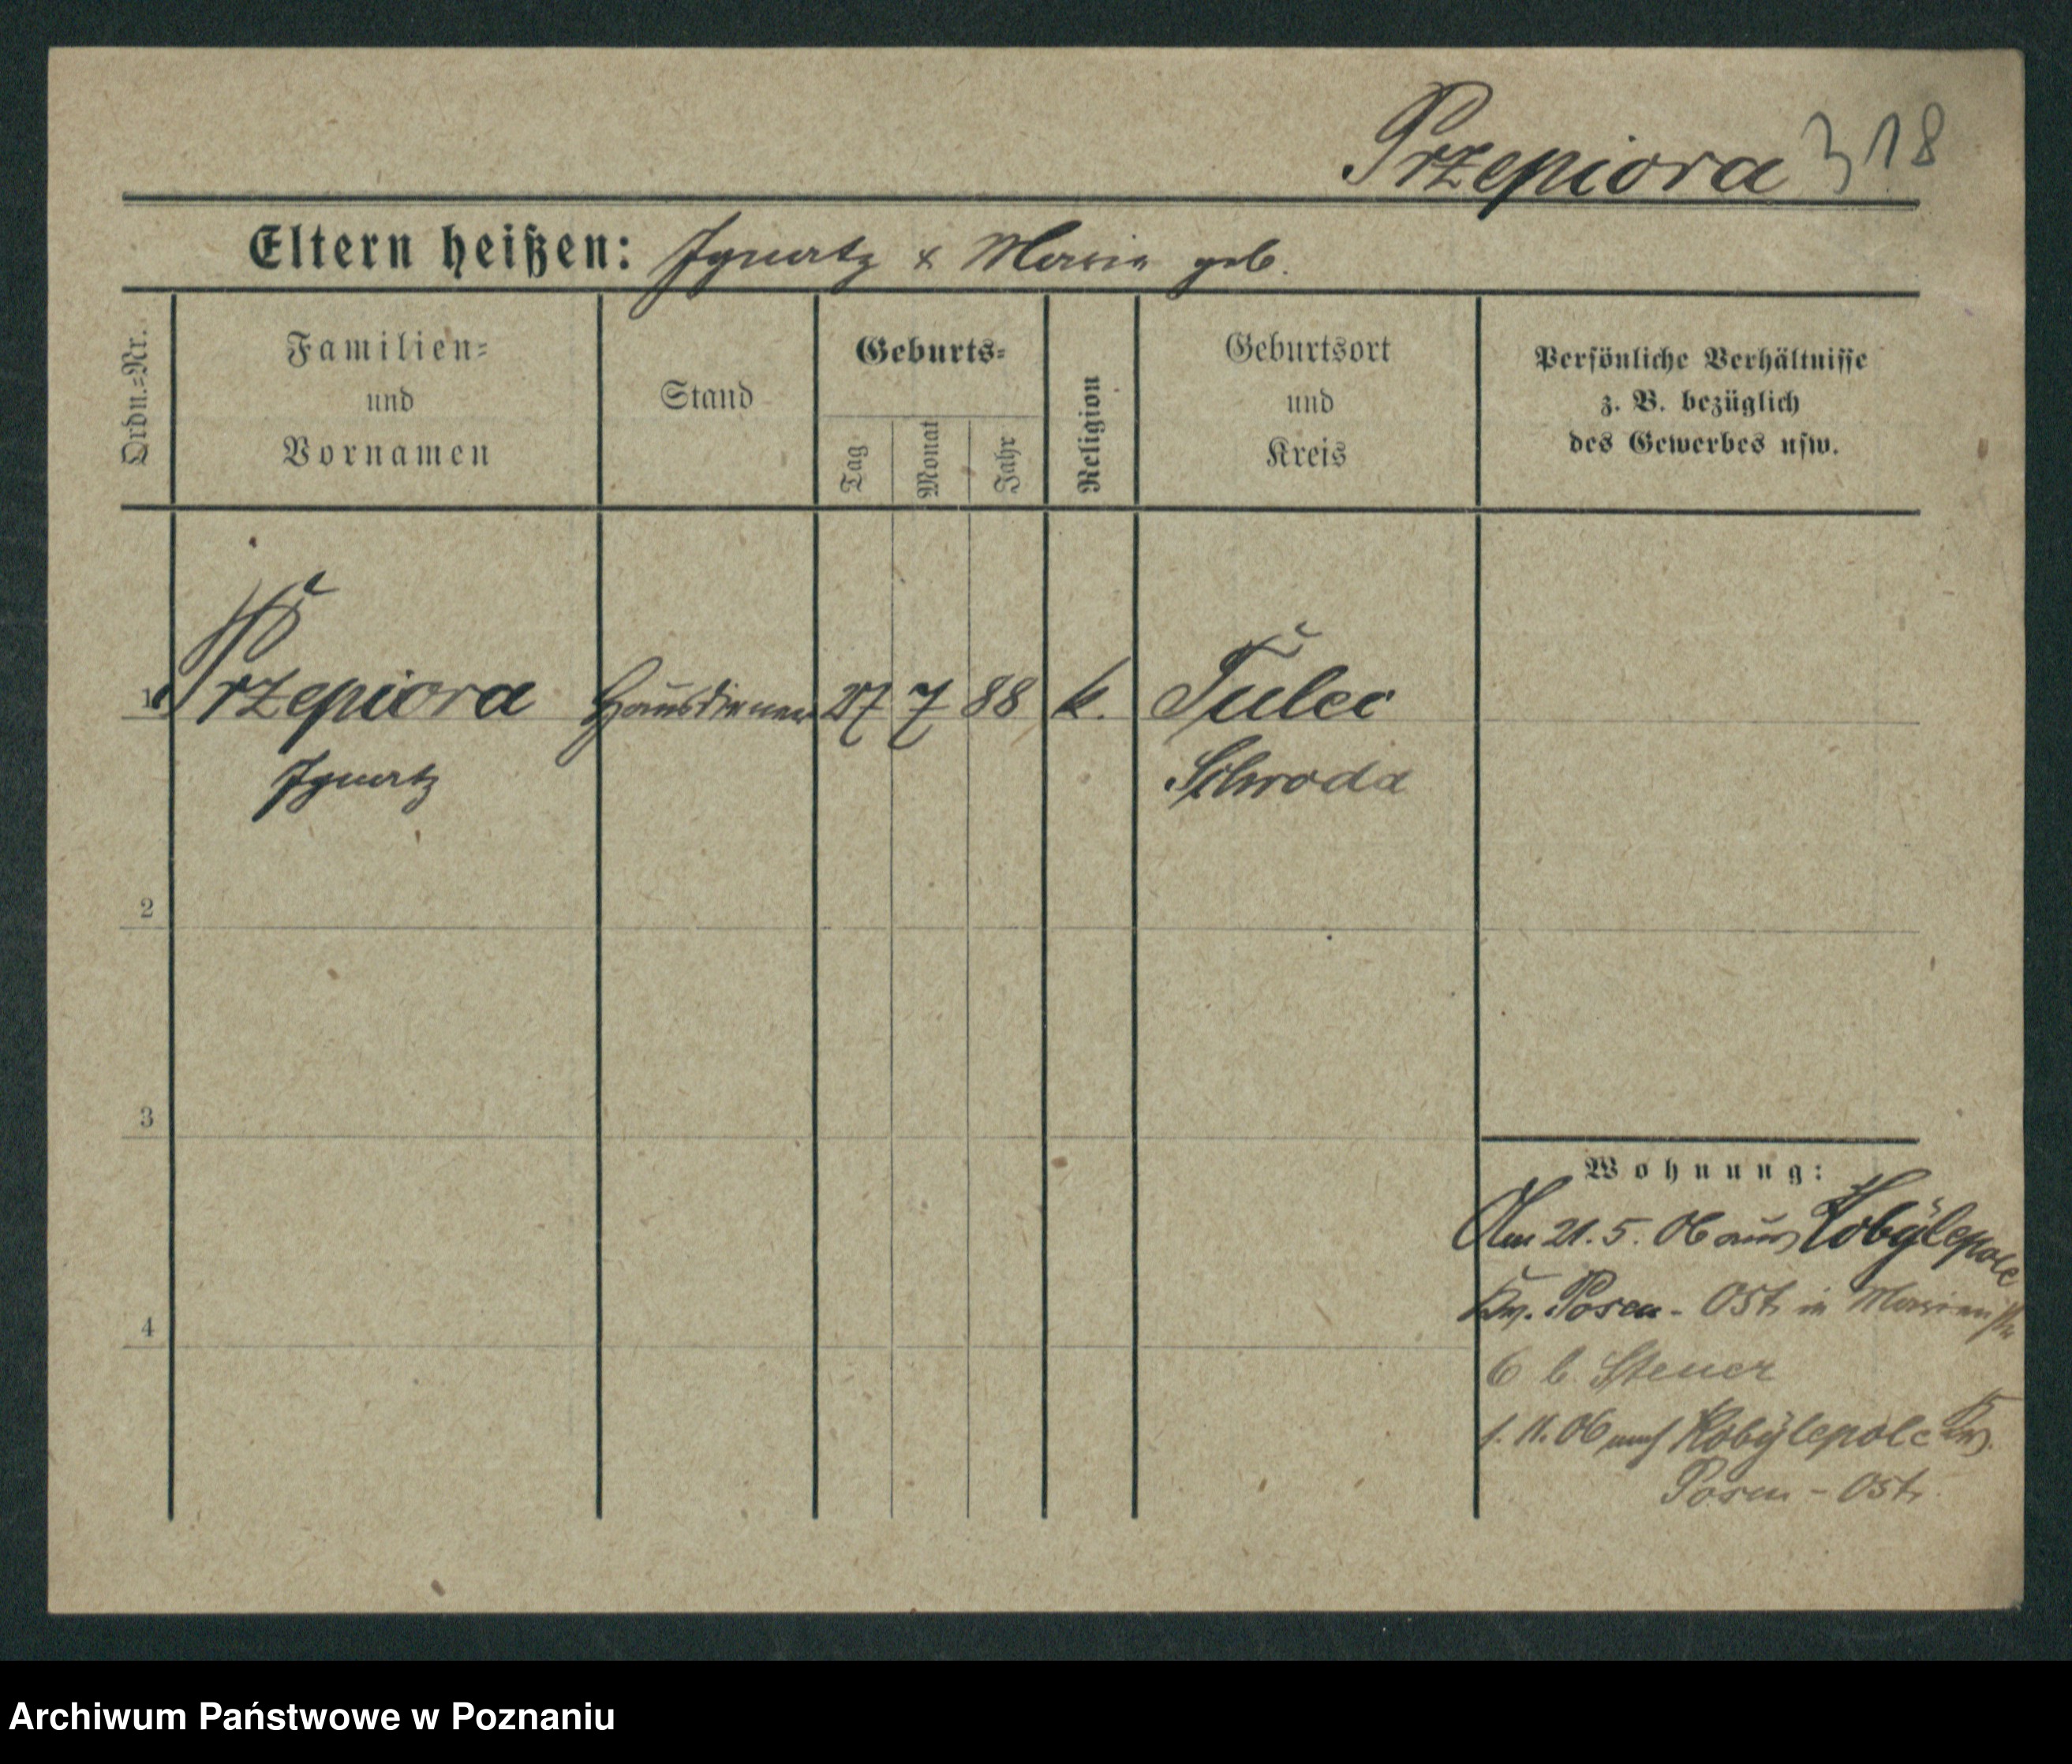 Przepiora 318
Eltern heißen: Ignatz & Maria geb.
Ordn.-Nr.
Familien-
und
Vornamen
Stand
Geburts-
Tag
Monat
Jahr
Religion
Geburtsort
und
Kreis
Persönliche Verhältnisse
z. B. bezüglich
des Gewerbes usw.
1 Przepiora Hausdiener 27 7 88 k. Tulec
Ignatz Schroda
2
3
4
Wohnung:
Am 21. 5. 06 aus Kobylepole
Kr. Posen - Ost. in Marienstr
6 b. Steuer
1. 11. 06 nach Kobylepole Kr.
Posen - Ost.
Archiwum Państwowe w Poznaniu